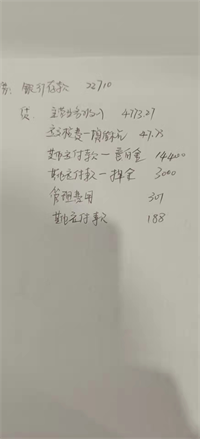 借: 银行存款 22710
贷: 主营业务收入 4773.27
应交税费—销项税 47.73
其他应付款— 14400
其他应付款—押金 3000
管理费用 301
其他应付款 188